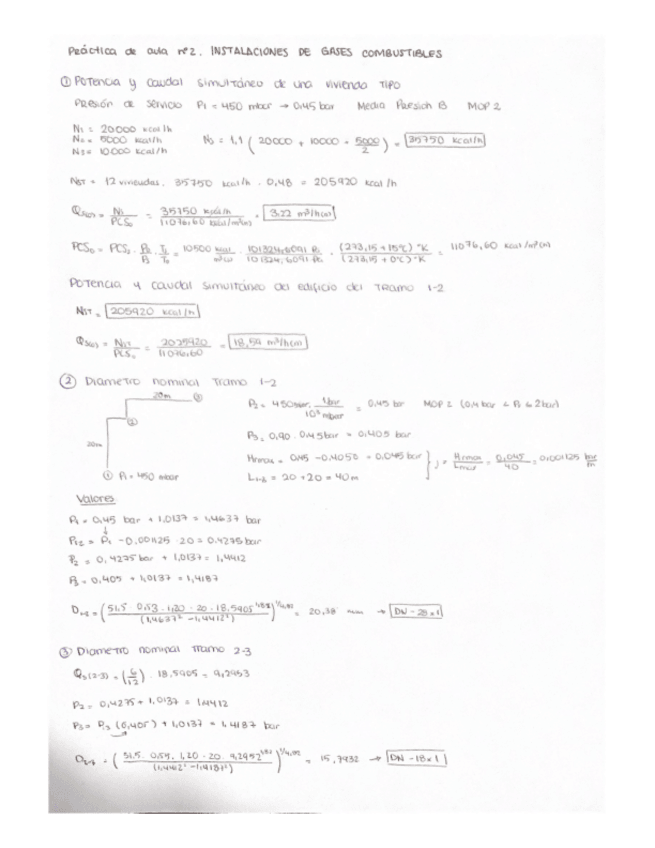 Práctica de aula nº2. INSTALACIONES DE GASES COMBUSTIBLES
① Potencia y caudal simultáneo de una vivienda tipo
Presión de servicio P₁ = 450 mbar → 0,45 bar Media Presión B MOP 2
N₁ = 20000 kcal/h
N₂ = 5000 kcal/h
N₃ = 10000 kcal/h
Nₛ = 1,1 ( 20000 + 10000 + 5000/2 ) = 35750 kcal/h
Nst = 12 viviendas. 35750 kcal/h · 0,48 = 205920 kcal/h
= 35750 kcal/h / 11076,60 kcal/m³(n) = 3,22 m³/h(n)
PCS₀ = PCS₂ · P₀/P₂ · T₂/T₀ = 10500 · (273,15 + 15ºC) ºK / (273,15 + 0ºC) ºK = 11076,60 kcal/m³(n)
Potencia y caudal simultáneo del edificio del tramo 1-2
Nst = 205920 kcal/h
= 11076,60 = 18,59 m³/h(n)
② Diametro nominal tramo 1-2
20m ③
②
20m
① P₁ = 450 mbar
P₂ = 450mbar · 1bar / 10³ mbar = 0,45 bar MOP 2 (0,4 bar < P₁ < 2bar)
P₃ = 0,90 · 0,45bar = 0,405 bar
Hrmax = 0,45 - 0,4050 = 0,045 bar
L₁₋₃ = 20 + 20 = 40m
J = Hrmax / Lmax = 0,045 / 40 = 0,001125 bar/m
Valores
P₁ = 0,45 bar + 1,0137 = 1,4637 bar
P₁₂ = P₁ - 0,001125 · 20 = 0,4275 bar
P₂ = 0,4275 bar + 1,0137 = 1,4412
P₃ = 0,405 + 1,0137 = 1,4187
D₁₋₂ = ( 51,5 · 0,53 · 1,20 · 20 · 18,5905 / (1,4637² - 1,4412²) ) = 20,38 mm → DN - 28x1
③ Diametro nominal tramo 2-3
Qs(2-3) = (6/12) · 18,5905 = 9,2953
P₂ = 0,4275 + 1,0137 = 1,4412
P₃ = P₃ (0,405) + 1,0137 = 1,4187 bar
= 15,7932 → DN - 18x1